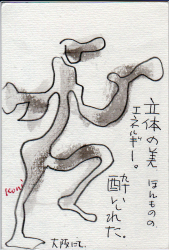 立体の美 ほんものの
エネルギー。
酔いしれた。
大阪にて。